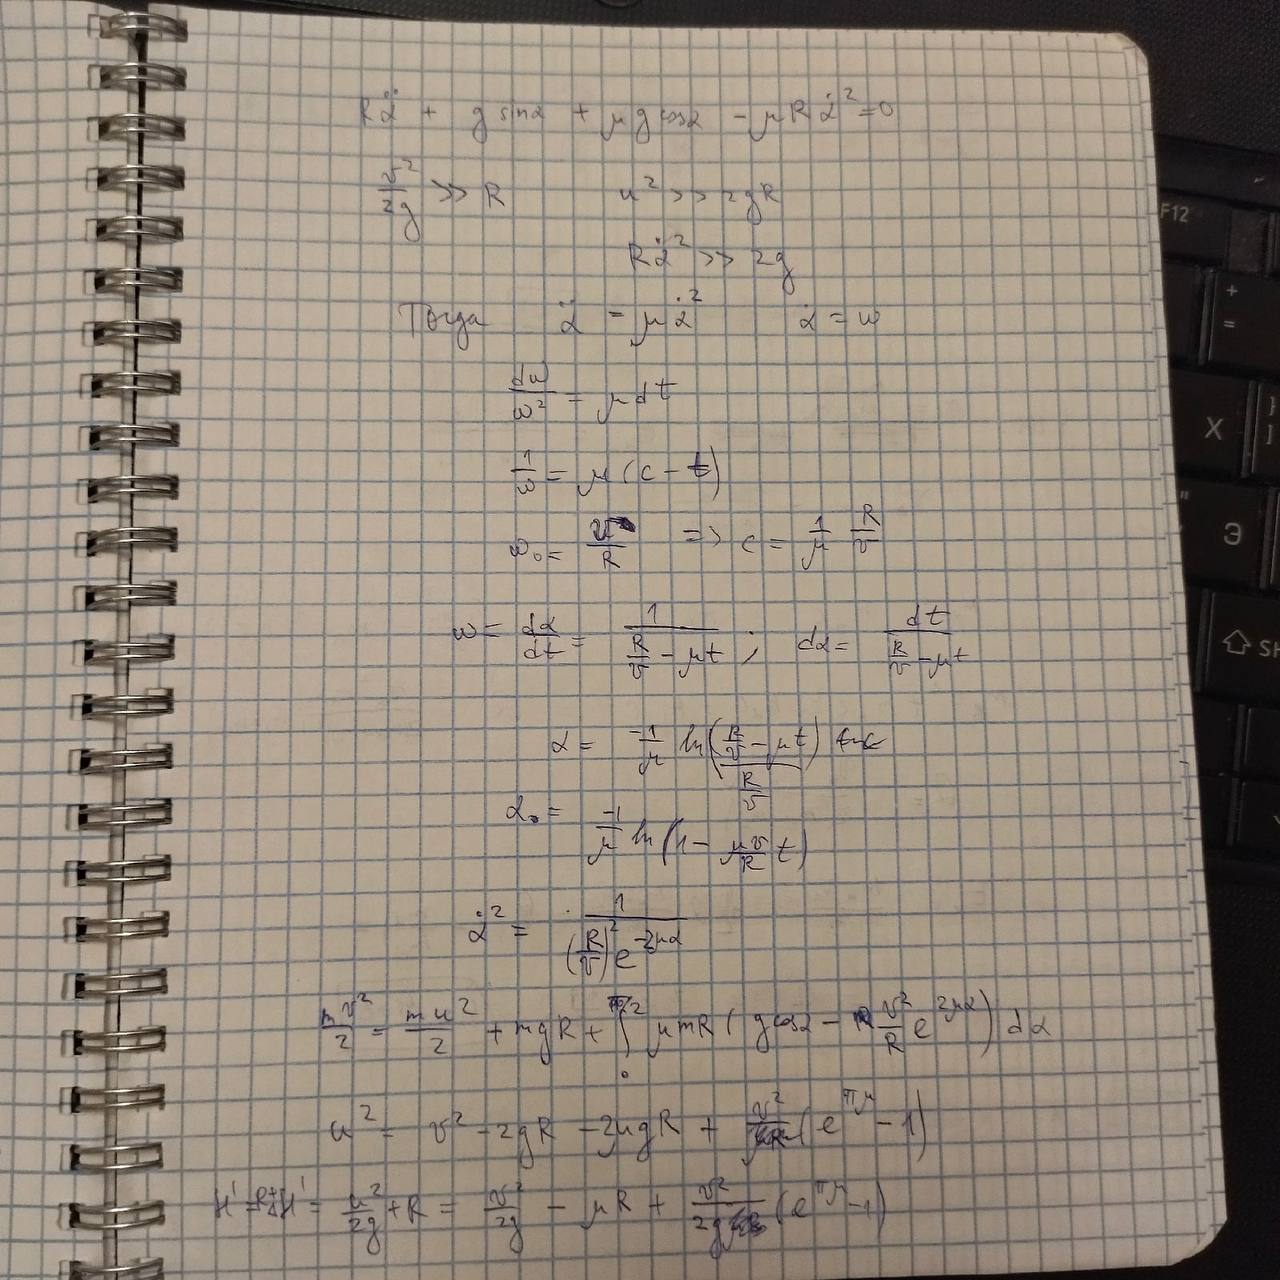 Rα̈ + g sinα + μg cosα - μRα̇² = 0
v²/2g >> R u² >> 2gR
Rα̇² >> 2g
Тогда α̈ = μα̇² α̇ = ω
dω/ω² = μdt
1/ω = μ(c - t)
ω₀ = v/R => c = 1/μ R/v
ω = dα/dt = 1/(R/v - μt); dα = dt/(R/v - μt)
α = -1/μ ln((R/v - μt)/(R/v))
α₀ = -1/μ ln(1 - μv/R t)
α̇² = 1/((R/v)² e^(-2μα))
mv²/2 = mu²/2 + mgR + ∫₀^(π/2) μmR(g cosα - v²/R e^(2μα)) dα
u² = v² - 2gR - 2μgR + v²(e^(πμ) - 1)
H' = R + H' = u²/2g + R = v²/2g - μR + v²/2g (e^(πμ) - 1)
F12
+
=
X
Э
SH